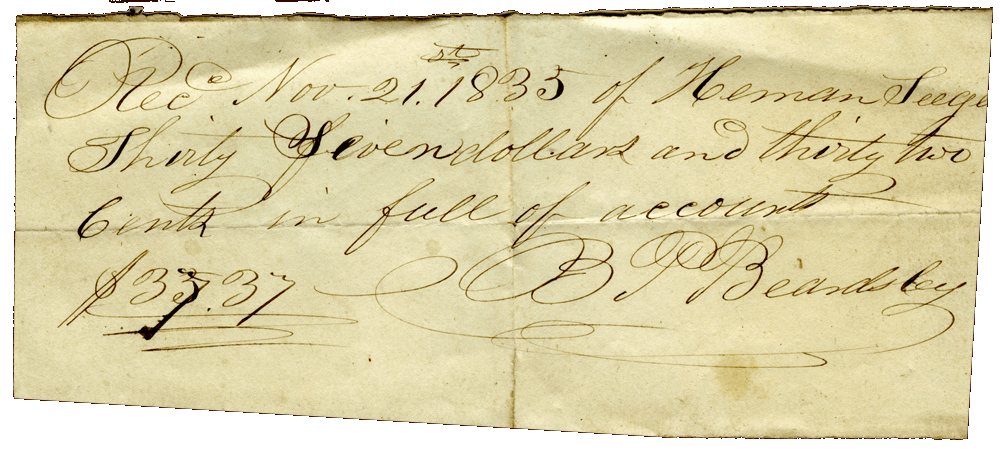 Recd Nov. 21.st 1835 of Heman Seege
Thirty Seven dollars and thirty two
Cents in full of accounts
$37.37 B P Beardsley